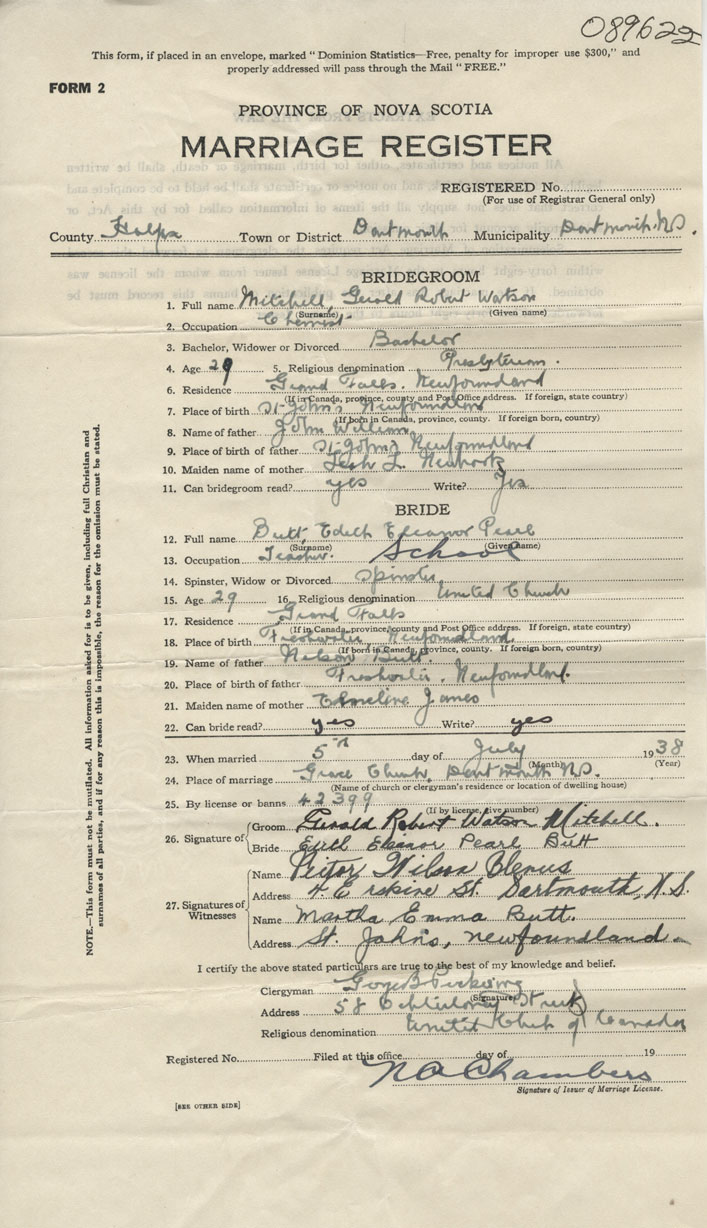 089622
This form, if placed in an envelope, marked "Dominion Statistics—Free, penalty for improper use $300," and
properly addressed will pass through the Mail "FREE."
FORM 2
PROVINCE OF NOVA SCOTIA
MARRIAGE REGISTER
REGISTERED No.
(For use of Registrar General only)
County Halfx Town or District Dartmouth Municipality Dartmouth. N.S.
BRIDEGROOM
1. Full name Mitchell, Gerald Robert Watson
(Surname) (Given name)
2. Occupation Chemist
3. Bachelor, Widower or Divorced Bachelor
4. Age 29 5. Religious denomination Presbyterian.
6. Residence Grand Falls. Newfoundland
(If in Canada, province, county and Post Office address. If foreign, state country)
7. Place of birth St. John's Newfoundland
(If born in Canada, province, county. If foreign born, country)
8. Name of father John William
9. Place of birth of father St. John's Newfoundland
10. Maiden name of mother L.
11. Can bridegroom read? yes Write? Yes
BRIDE
12. Full name Butt, Edith Eleanor Pearl
(Surname) (Given name)
13. Occupation Teacher. School
14. Spinster, Widow or Divorced Spinster
15. Age 29 16. Religious denomination United Church
17. Residence Grand Falls
(If in Canada, province, county and Post Office address. If foreign, state country)
18. Place of birth Freshwater, Newfoundland.
(If born in Canada, province, county. If foreign born, country)
19. Name of father Nelson Butt.
20. Place of birth of father Freshwater. Newfoundland.
21. Maiden name of mother James
22. Can bride read? yes Write? yes
23. When married 5th day of July 1938
(Month) (Year)
24. Place of marriage Grace Church, Dartmouth N.S.
(Name of church or clergyman's residence or location of dwelling house)
25. By license or banns 42399
(If by license, give number)
26. Signature of Groom Gerald Robert Watson Mitchell.
Bride Edith Eleanor Pearl Butt
27. Signatures of Witnesses Name Victor Wilson
Address 4. Erskine St. Dartmouth, N.S.
Name Martha Emma Butt.
Address St. John's, Newfoundland.
I certify the above stated particulars are true to the best of my knowledge and belief.
Clergyman
(Signature)
Address 58 Street
Religious denomination United Church of Canada
Registered No. Filed at this office day of 19
N A Chambers
Signature of Issuer of Marriage License.
[SEE OTHER SIDE]
NOTE.—This form must not be mutilated. All information asked for is to be given, including full Christian and
surnames of all parties, and if for any reason this is impossible, the reason for the omission must be stated.